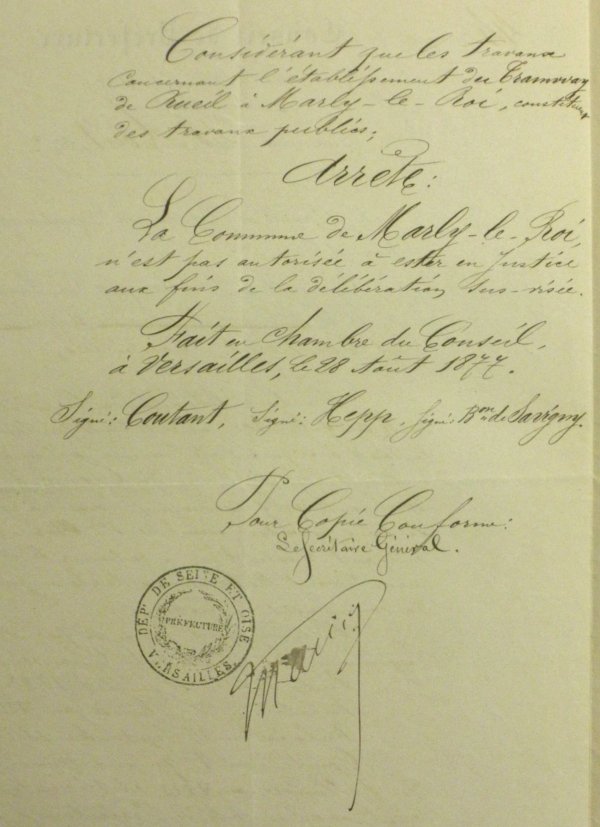 Considérant que les travaux
concernant l'établissement du Tramway
de Rueil à Marly-le-Roi, constituent
des travaux publics;
Arrête:
La Commune de Marly-le-Roi,
n'est pas autorisée à ester en Justice
aux fins de la délibération sus-visée.
Fait en chambre du Conseil,
à Versailles, le 28 Août 1877.
Signé: Coutant, Signé: Hepp, Signé: Bon de Savigny.
Pour Copie Conforme:
Le Secrétaire Général.
DÉPT DE SEINE ET OISE
PRÉFECTURE
VERSAILLES